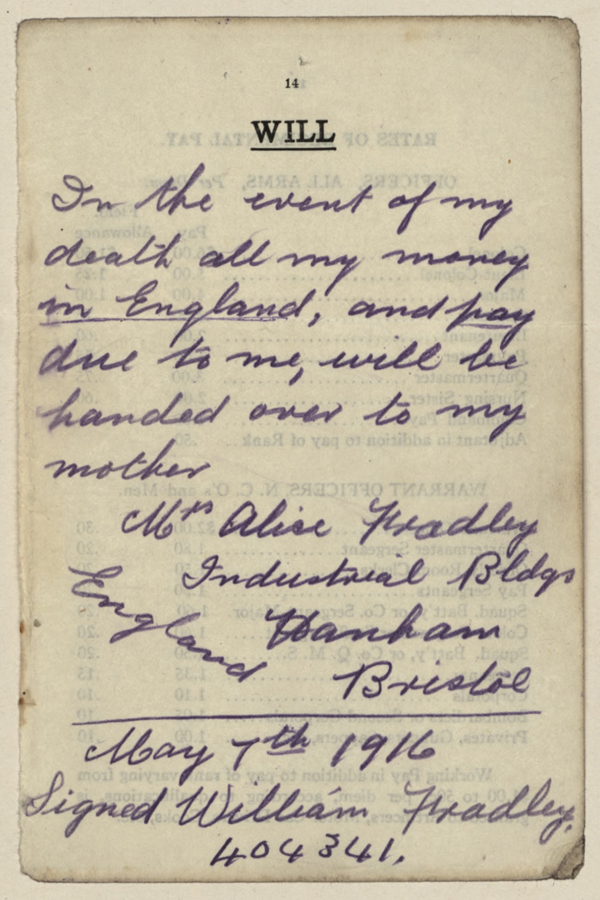 14
WILL
In the event of my
death all my money
in England, and pay
due to me, will be
handed over to my
mother
Mrs Alise Fradley
Industreal Bldgs
Hanham
England
Bristol
May 7th 1916
Signed William Fradley,
404341.